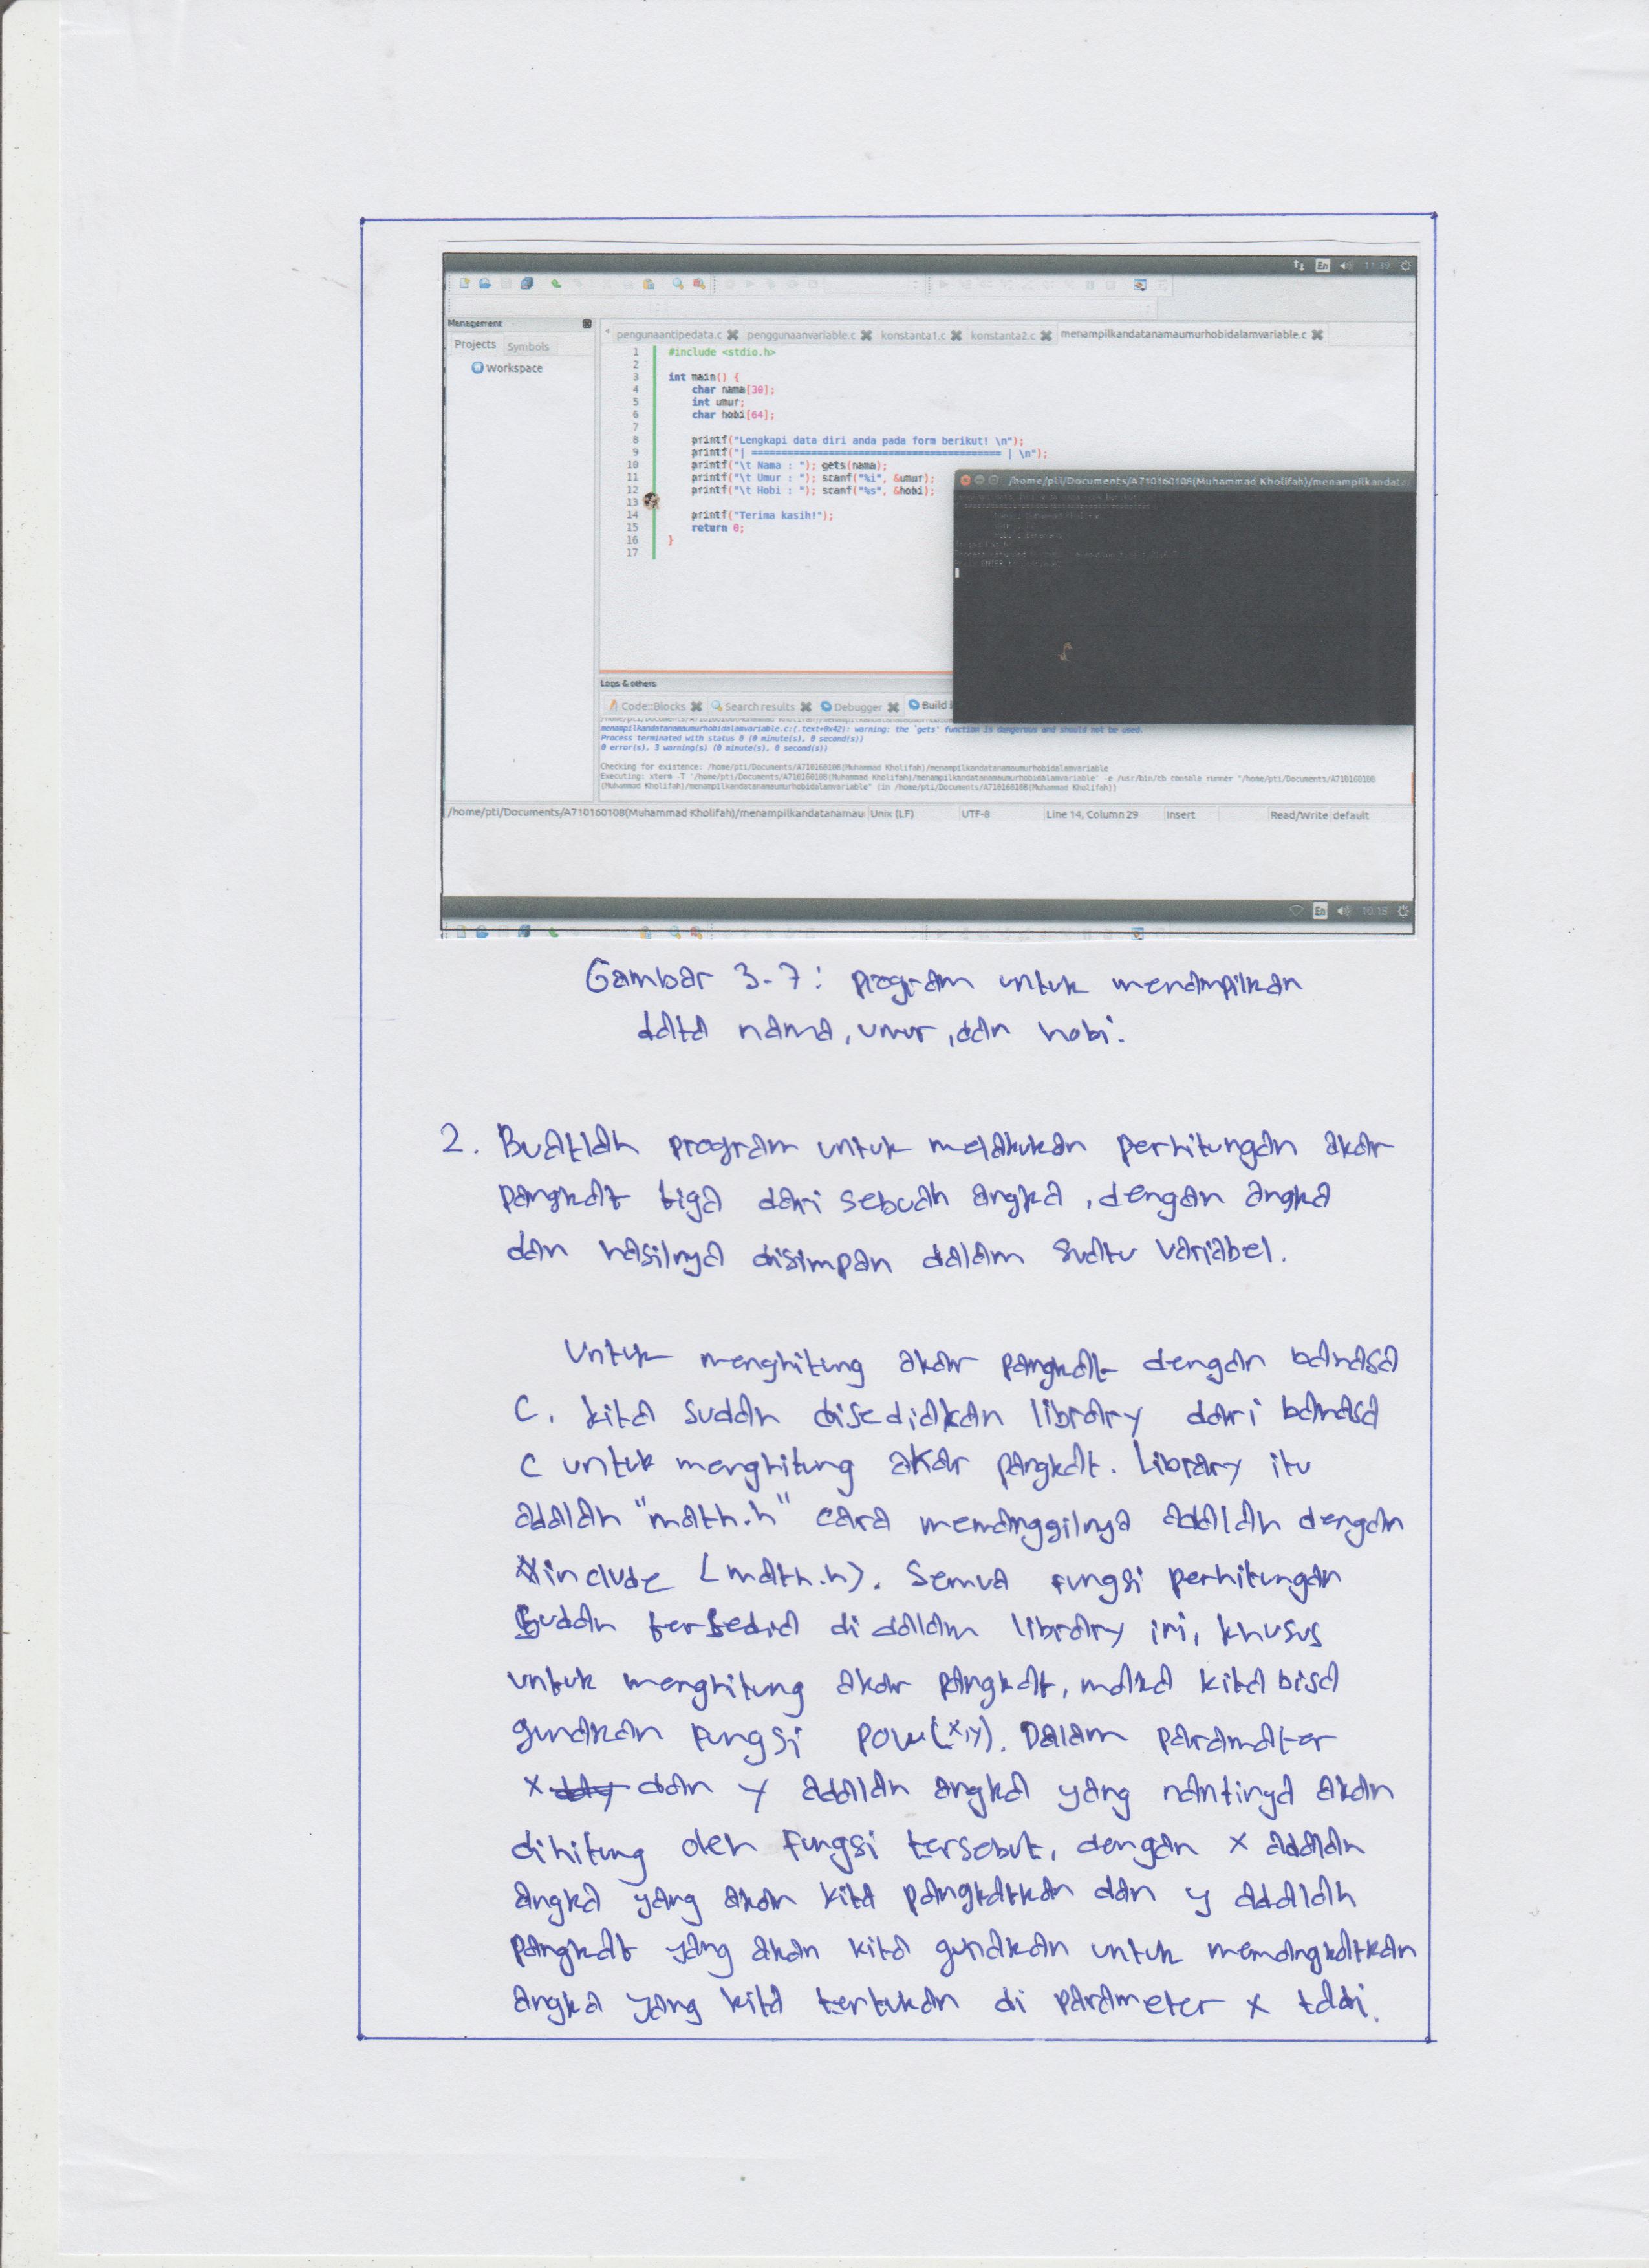 En 11:19
Management
Projects Symbols
Workspace
pengunaantipedata.c penggunaanvariable.c konstanta1.c konstanta2.c menampilkandatanamaumurhobidalamvariable.c
1 #include <stdio.h>
2
3 int main() {
4 char nama[30];
5 int umur;
6 char hobi[64];
7
8 printf("Lengkapi data diri anda pada form berikut! \n");
9 printf("| ========================================= | \n");
10 printf("\t Nama : "); gets(nama);
11 printf("\t Umur : "); scanf("%i", &umur);
12 printf("\t Hobi : "); scanf("%s", &hobi);
13
14 printf("Terima kasih!");
15 return 0;
16 }
17
/home/pti/Documents/A710160108(Muhammad Kholifah)/menampilkandata
Logs & others
Code::Blocks Search results Debugger Build
menampilkandatanamaumurhobidalamvariable.c:(.text+0x42): warning: the `gets' function is dangerous and should not be used.
Process terminated with status 0 (0 minute(s), 0 second(s))
0 error(s), 3 warning(s) (0 minute(s), 0 second(s))
Checking for existence: /home/pti/Documents/A710160108(Muhammad Kholifah)/menampilkandatanamaumurhobidalamvariable
Executing: xterm -T '/home/pti/Documents/A710160108(Muhammad Kholifah)/menampilkandatanamaumurhobidalamvariable' -e /usr/bin/cb_console_runner "/home/pti/Documents/A710160108
(Muhammad Kholifah)/menampilkandatanamaumurhobidalamvariable" (in /home/pti/Documents/A710160108(Muhammad Kholifah))
/home/pti/Documents/A710160108(Muhammad Kholifah)/menampilkandatanamau Unix (LF) UTF-8 Line 14, Column 29 Insert Read/Write default
En 10:18
Gambar 3-7: program untuk menampilkan
data nama, umur, dan hobi.
2. Buatlah program untuk melakukan perhitungan akar
pangkat tiga dari sebuah angka, dengan angka
dan hasilnya disimpan dalam suatu variabel.
Untuk menghitung akar pangkat dengan bahasa
C. kita sudah disediakan library dari bahasa
C untuk menghitung akar pangkat. Library itu
adalah "math.h" cara memanggilnya adalah dengan
#include (math.h). Semua fungsi perhitungan
sudah tersedia di dalam library ini, khusus
untuk menghitung akar pangkat, maka kita bisa
gunakan fungsi pow(x,y). Dalam paramater
x dan y adalah angka yang nantinya akan
dihitung oleh fungsi tersebut, dengan x adalah
angka yang akan kita pangkatkan dan y adalah
pangkat yang akan kita gunakan untuk memangkatkan
angka yang kita tentukan di parameter x tadi.